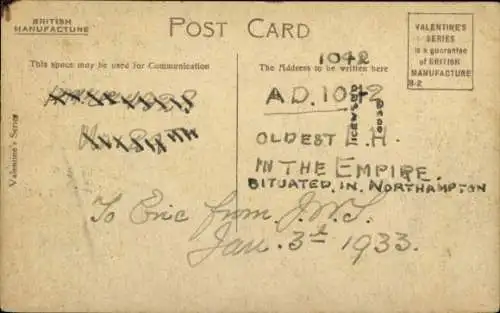 BRITISH
MANUFACTURE
POST CARD
VALENTINE'S
SERIES
is a guarantee
of BRITISH
MANUFACTURE
This space may be used for Communication
The Address to be written here
1042
A.D. 1042
OLDEST E.H.
IN THE EMPIRE.
SITUATED, IN, NORTHAMPTON
Valentine's Series
To Eric from J.W.S.
Jan. 3rd 1933.